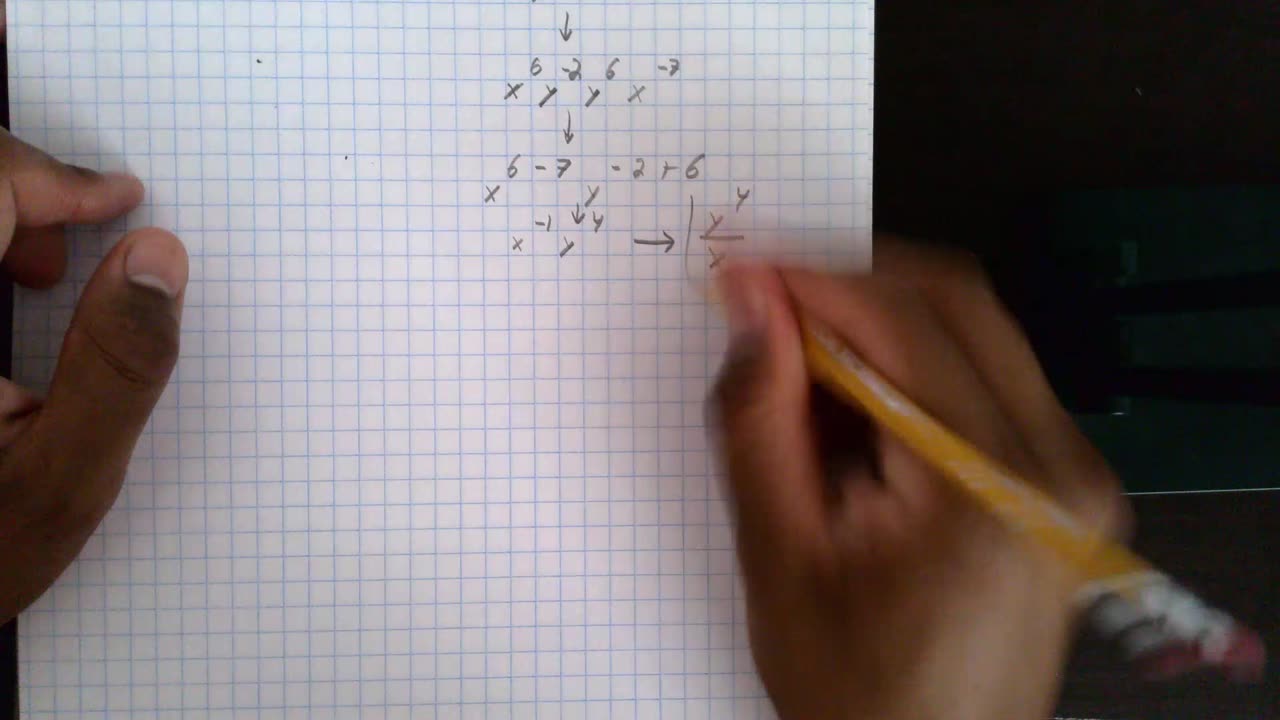 ↓
x^6 y^-2 y^6 x^-7
↓
x^6-7 y^-2+6
↓
x^-1 y^4 → y^4/x